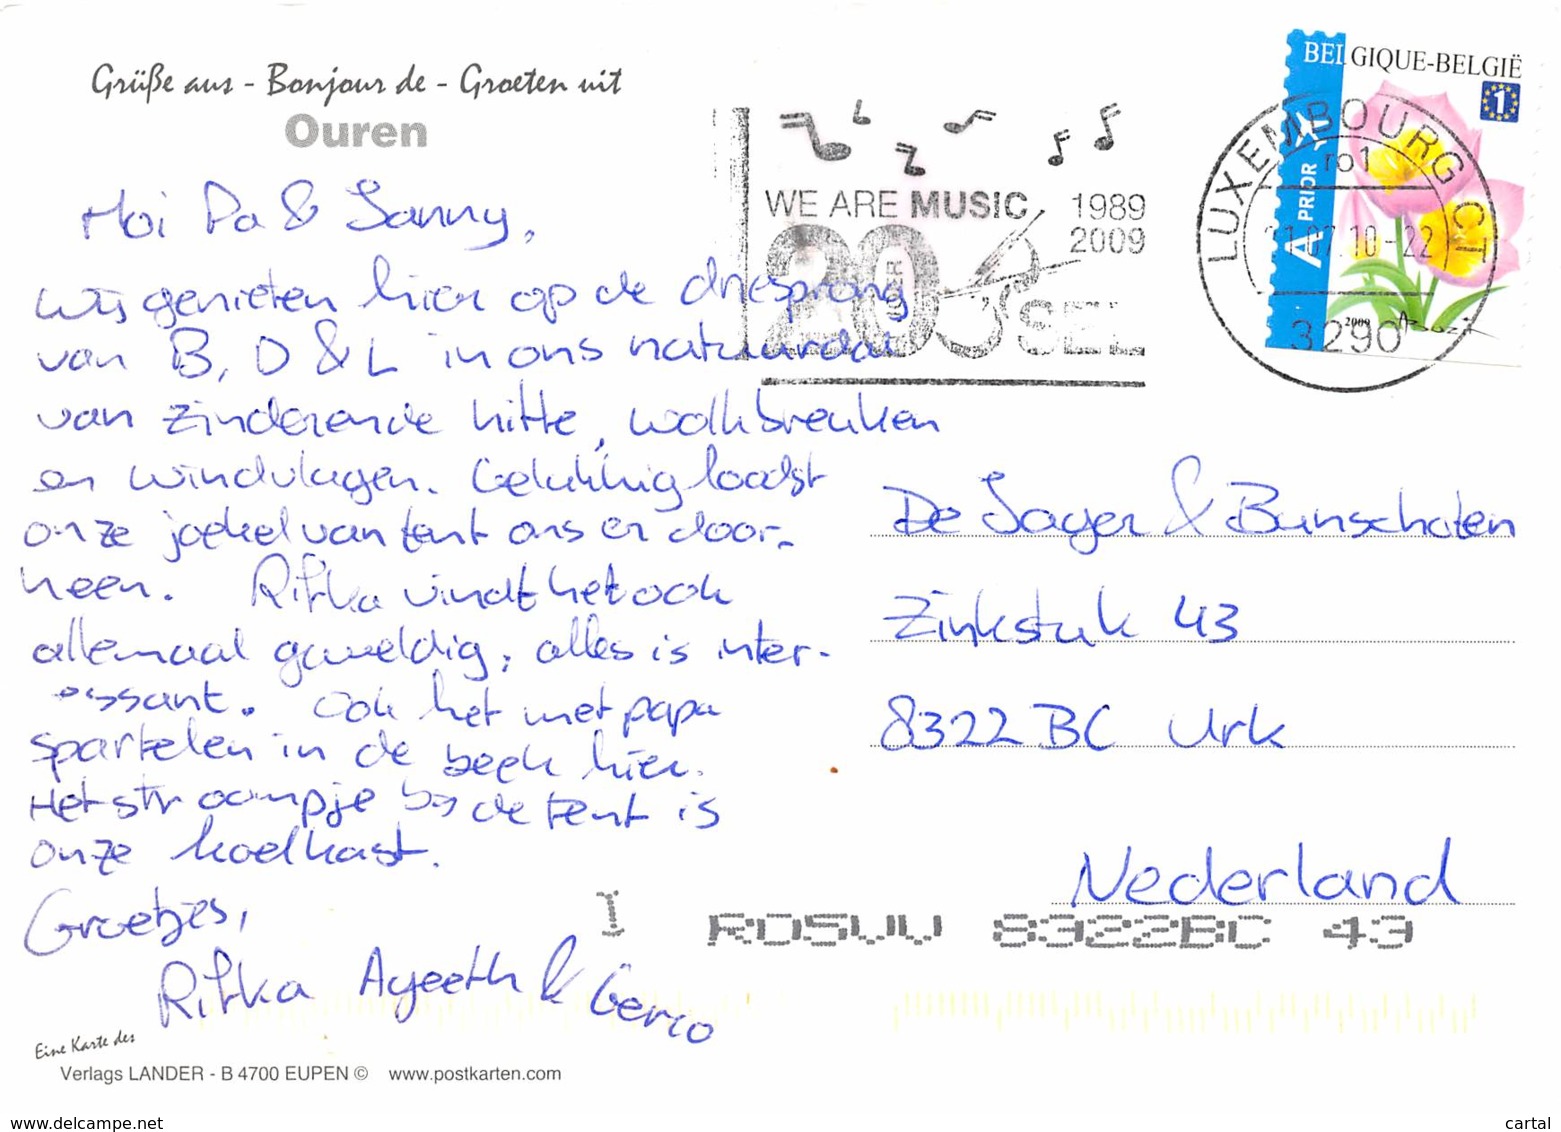 Grüße aus - Bonjour de - Groeten uit
Ouren
Hoi Pa & Sanny,
wij genieten hier op de driesprong
van B, D & L in ons natuurdal
van zinderende hitte, wolkbreuken
en windvlagen. Gelukkig loodst
onze joekel van tent ons er door-
heen. Rifka vindt het ook
allemaal geweldig, alles is inter-
essant. Ook het met papa
spartelen in de beek hier.
Het stroompje bij de tent is
onze koelkast.
Groetjes,
Rifka Ageeth & Gerco
Eine Karte des
Verlags LANDER - B 4700 EUPEN © www.postkarten.com
WE ARE MUSIC 1989
2009
20
SEL
BELGIQUE-BELGIË
1
A PRIOR
2009
LUXEMBOURG CT
ro1
07.10-22
3290
De Jager & Bunschoten
Zinkstuk 43
8322 BC Urk
Nederland
I ROSUU 8322BC 43
www.delcampe.net
cartal